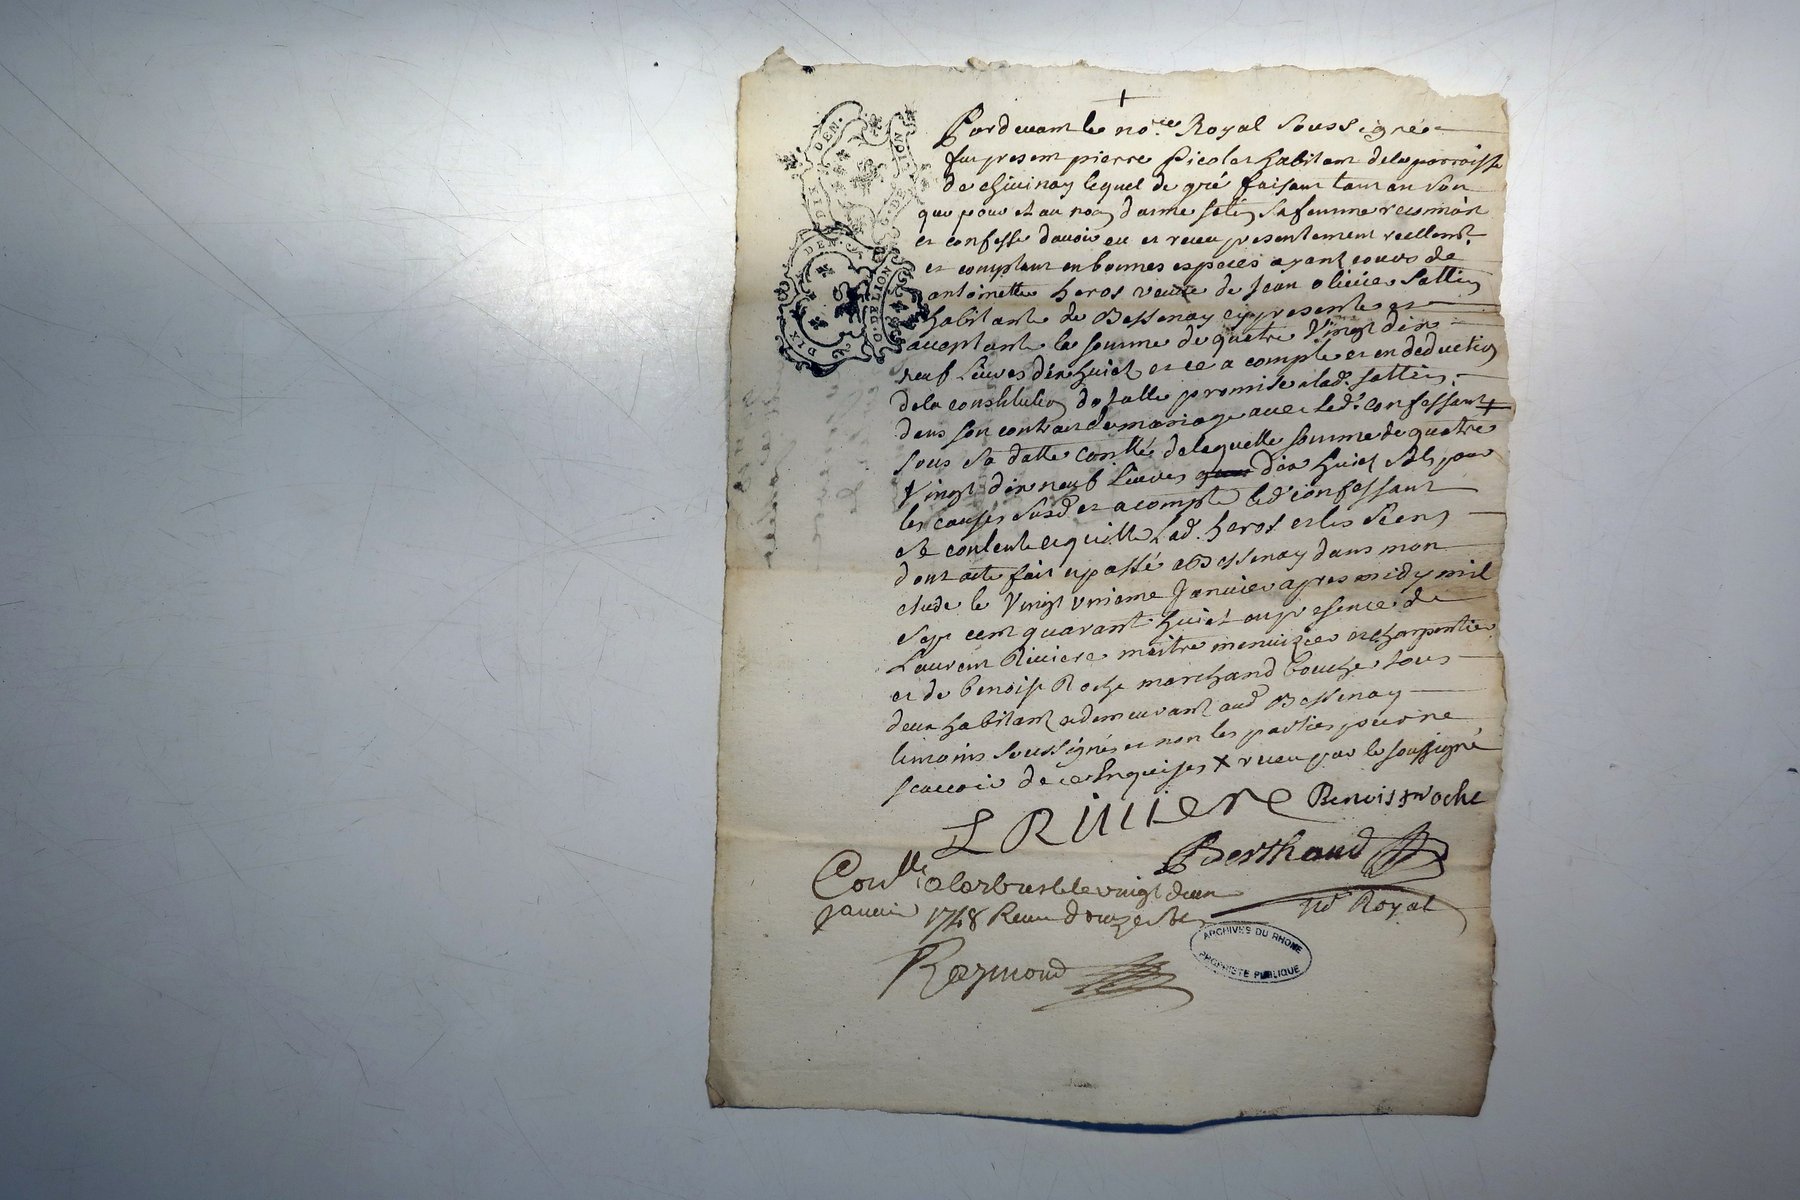 Pardevant le no.re Royal Soussigné
fut present pierre Picolet habitant dela parroisse
de chivinay lequel de gré faisant tant en son
que pour et au nom danne Satin sa femme reconnoit
et confesse davoir eu et receu presentement reellemt.
et comptant en bonnes especes ayant cours de
antoinette heros veuve de Jean olivier Sattin
habitante de Bessenay cy presente et
acceptante la somme de quatre Vingt dix
neuf Livres dix huict et ce a compte et en deduction
dela constitution dotalle promise a lad. sattin
dans son contract de mariage avec led.t confessant +
sous sa datte conllé delaquelle somme de quatre
Vingt dix neuf Livres dix huict sols pour
les causes susd et acompte led confessant
se contente et quitte Lad. heros et les siens
dont acte fait et passé a Bessenay dans mon
etude le Vingt unieme Janvier apres midy mil
sept cent quarant huict en presence de
Laurent Riviere maitre menuizier et charpentier
et de benoist Roche marchand bouche tous
deux habitant et demeurant aud Bessenay
temoins soussignés et non les parties pour ne
scavoir de ce Enquises x receu par le soussigné
L RIVIERE Benoist Roche
Berthaud
No.re Royal
Conllé a larbresle le vingt deux
janvier 1748 Receu douze sols
Raymond
DIX DEN.
G. DE LION
DIX DEN.
G. DE LION
ARCHIVES DU RHONE
PROPRIETE PUBLIQUE